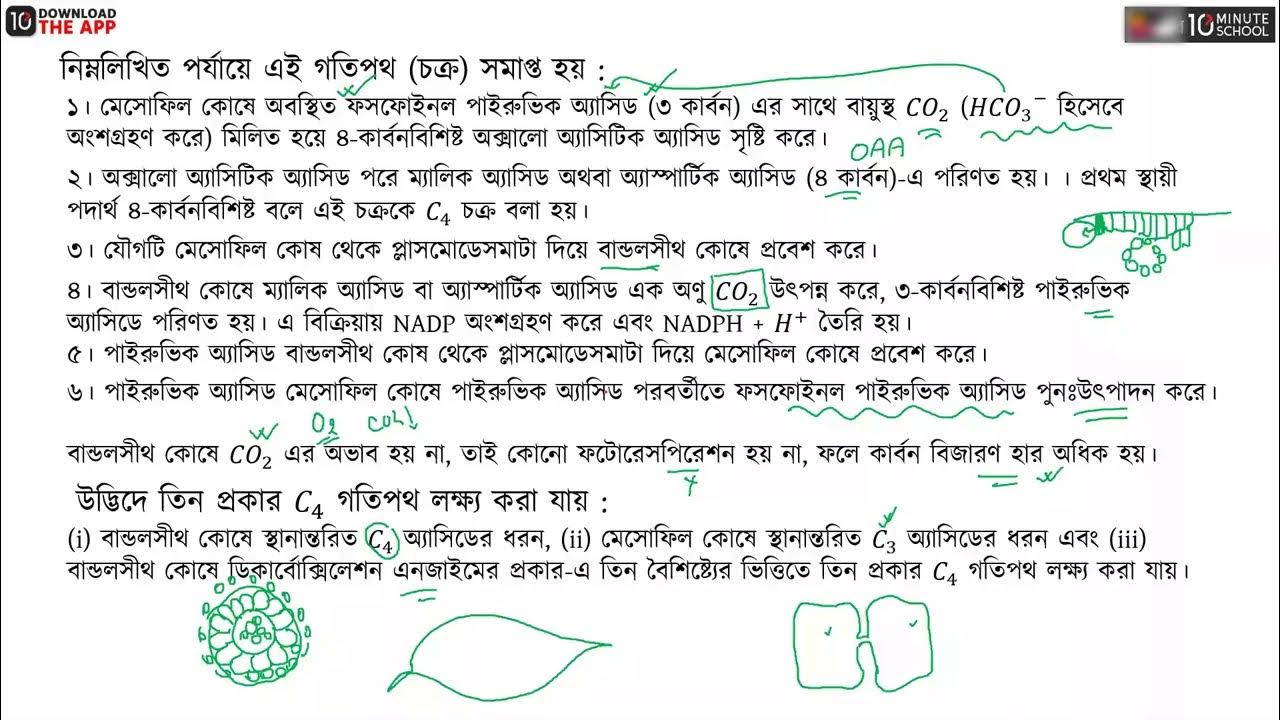 10 DOWNLOAD THE APP
10 MINUTE SCHOOL
নিম্নলিখিত পর্যায়ে এই গতিপথ (চক্র) সমাপ্ত হয় :
১। মেসোফিল কোষে অবস্থিত ফসফোইনল পাইরুভিক অ্যাসিড (৩ কার্বন) এর সাথে বায়ুস্থ CO₂ (HCO₃⁻ হিসেবে
অংশগ্রহণ করে) মিলিত হয়ে ৪-কার্বনবিশিষ্ট অক্সালো অ্যাসিটিক অ্যাসিড সৃষ্টি করে।
OAA
২। অক্সালো অ্যাসিটিক অ্যাসিড পরে ম্যালিক অ্যাসিড অথবা অ্যাস্পার্টিক অ্যাসিড (৪ কার্বন)-এ পরিণত হয়। । প্রথম স্থায়ী
পদার্থ ৪-কার্বনবিশিষ্ট বলে এই চক্রকে C₄ চক্র বলা হয়।
৩। যৌগটি মেসোফিল কোষ থেকে প্লাসমোডেসমাটা দিয়ে বান্ডলসীথ কোষে প্রবেশ করে।
৪। বান্ডলসীথ কোষে ম্যালিক অ্যাসিড বা অ্যাস্পার্টিক অ্যাসিড এক অণু CO₂ উৎপন্ন করে, ৩-কার্বনবিশিষ্ট পাইরুভিক
অ্যাসিডে পরিণত হয়। এ বিক্রিয়ায় NADP অংশগ্রহণ করে এবং NADPH + H⁺ তৈরি হয়।
৫। পাইরুভিক অ্যাসিড বান্ডলসীথ কোষ থেকে প্লাসমোডেসমাটা দিয়ে মেসোফিল কোষে প্রবেশ করে।
৬। পাইরুভিক অ্যাসিড মেসোফিল কোষে পাইরুভিক অ্যাসিড পরবর্তীতে ফসফোইনল পাইরুভিক অ্যাসিড পুনঃউৎপাদন করে।
O₂ CO₂↓
বান্ডলসীথ কোষে CO₂ এর অভাব হয় না, তাই কোনো ফটোরেসপিরেশন হয় না, ফলে কার্বন বিজারণ হার অধিক হয়।
উদ্ভিদে তিন প্রকার C₄ গতিপথ লক্ষ্য করা যায় :
(i) বান্ডলসীথ কোষে স্থানান্তরিত C₄ অ্যাসিডের ধরন, (ii) মেসোফিল কোষে স্থানান্তরিত C₃ অ্যাসিডের ধরন এবং (iii)
বান্ডলসীথ কোষে ডিকার্বোক্সিলেশন এনজাইমের প্রকার-এ তিন বৈশিষ্ট্যের ভিত্তিতে তিন প্রকার C₄ গতিপথ লক্ষ্য করা যায়।